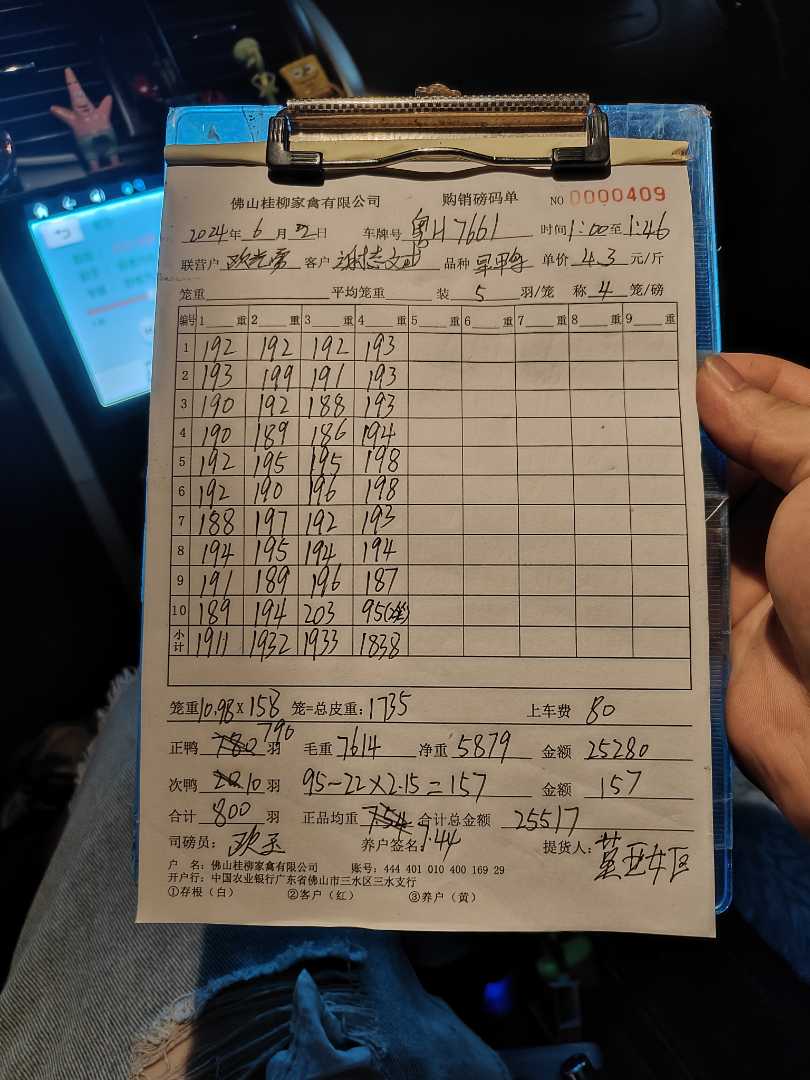 佛山桂柳家禽有限公司 购销磅码单 NO 0000409
2024年 6 月 22日 车牌号 粤H7661 时间 1:00至1:46
联营户 客户 品种 单价 4.3 元/斤
笼重 平均笼重 装 5 羽/笼 称 4 笼/磅
编号 1 重 2 重 3 重 4 重 5 重 6 重 7 重 8 重 9 重
1 192 192 192 193
2 193 199 191 193
3 190 192 188 193
4 190 189 186 194
5 192 195 195 198
6 192 190 196 198
7 188 197 192 193
8 194 195 194 194
9 191 189 196 187
10 189 194 203 95(2笼)
小计 1911 1932 1933 1838
笼重 10.98 X 158 笼=总皮重: 1735 上车费 80
正鸭 780 790 羽 毛重 7614 净重 5879 金额 25280
次鸭 20 10 羽 95-22X2.15=157 金额 157
合计 800 羽 正品均重 754 7.44 合计总金额 25517
司磅员: 养户签名 提货人:
户 名: 佛山桂柳家禽有限公司 账号: 444 401 010 400 169 29
开户行: 中国农业银行广东省佛山市三水区三水支行
①存根(白) ②客户(红) ③养户(黄)